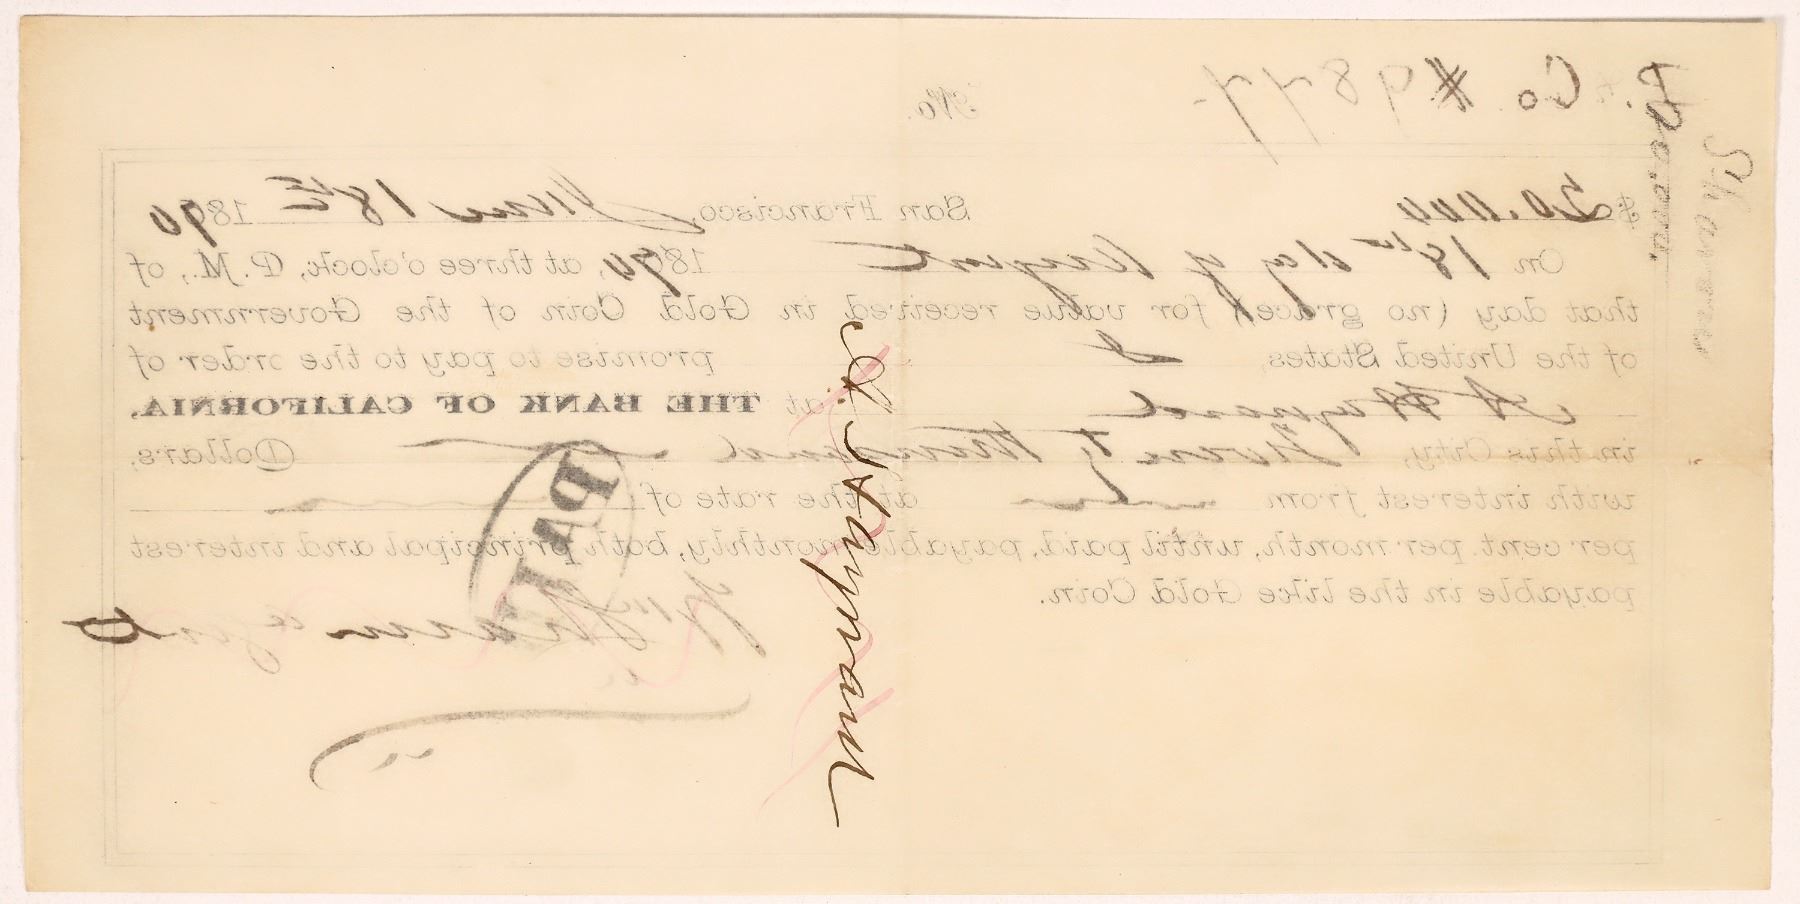 No.
$ 20.000 San Francisco, June 18th 1890
On 18th day of August 1890, at three o'clock, P. M., of
that day (no grace), for value received in Gold Coin of the Government
of the United States, I promise to pay to the order of
A Hayward at THE BANK OF CALIFORNIA,
in this City, Twenty Thousand Dollars,
with interest from at the rate of
per cent. per month, until paid, payable monthly, both principal and interest
payable in the like Gold Coin.
PAID
A. Hayward
Co # 9877